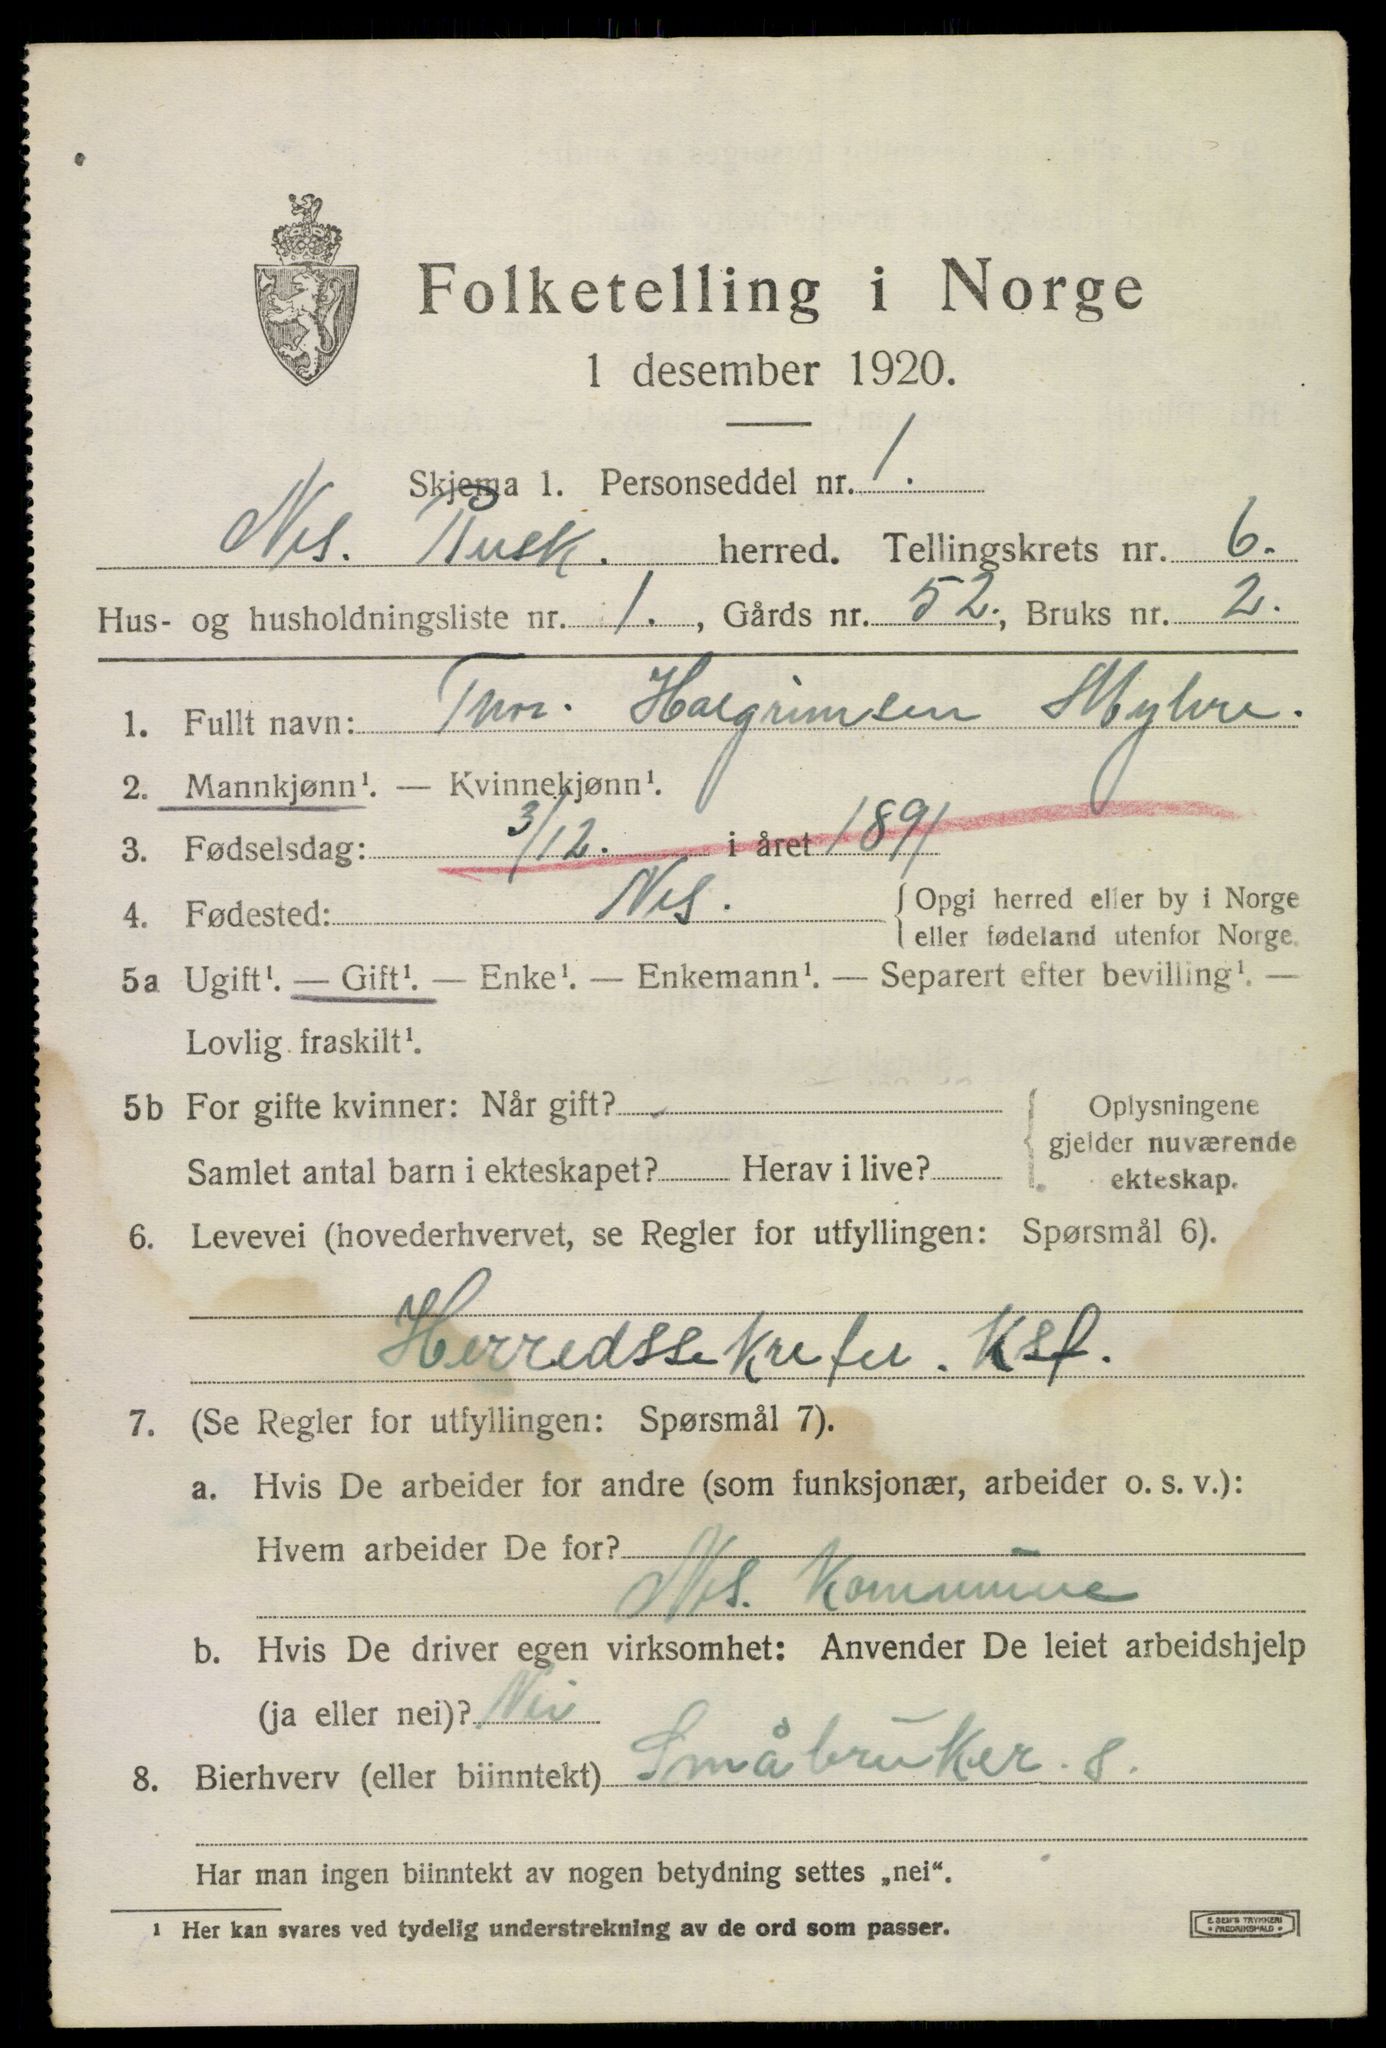 Folketelling i Norge
1 desember 1920.
Skjema 1. Personseddel nr. 1.
Nes. Busk. herred. Tellingskrets nr. 6.
Hus- og husholdningsliste nr. 1., Gårds nr. 52., Bruks nr. 2.
1. Fullt navn: Thor. Halgrimsen Myhre.
2. Mannkjønn¹. — Kvinnekjønn¹.
3. Fødselsdag: 3/12. i året 1891
4. Fødested: Nes. { Opgi herred eller by i Norge
eller fødeland utenfor Norge.
5a Ugift¹. — Gift¹. — Enke¹. — Enkemann¹. — Separert efter bevilling¹. —
Lovlig fraskilt¹.
5b For gifte kvinner: Når gift?
Samlet antal barn i ekteskapet? Herav i live?
{ Oplysningene
gjelder nuværende
ekteskap.
6. Levevei (hovederhvervet, se Regler for utfyllingen: Spørsmål 6).
Herredssekretær. Ksf.
7. (Se Regler for utfyllingen: Spørsmål 7).
a. Hvis De arbeider for andre (som funksjonær, arbeider o. s. v.):
Hvem arbeider De for?
Nes. Kommune
b. Hvis De driver egen virksomhet: Anvender De leiet arbeidshjelp
(ja eller nei)? Nei
8. Bierhverv (eller biinntekt) Småbruker. s.
Har man ingen biinntekt av nogen betydning settes „nei“.
¹ Her kan svares ved tydelig understrekning av de ord som passer.
E. SEM'S TRYKKERI
* FREDRIKSHALD *